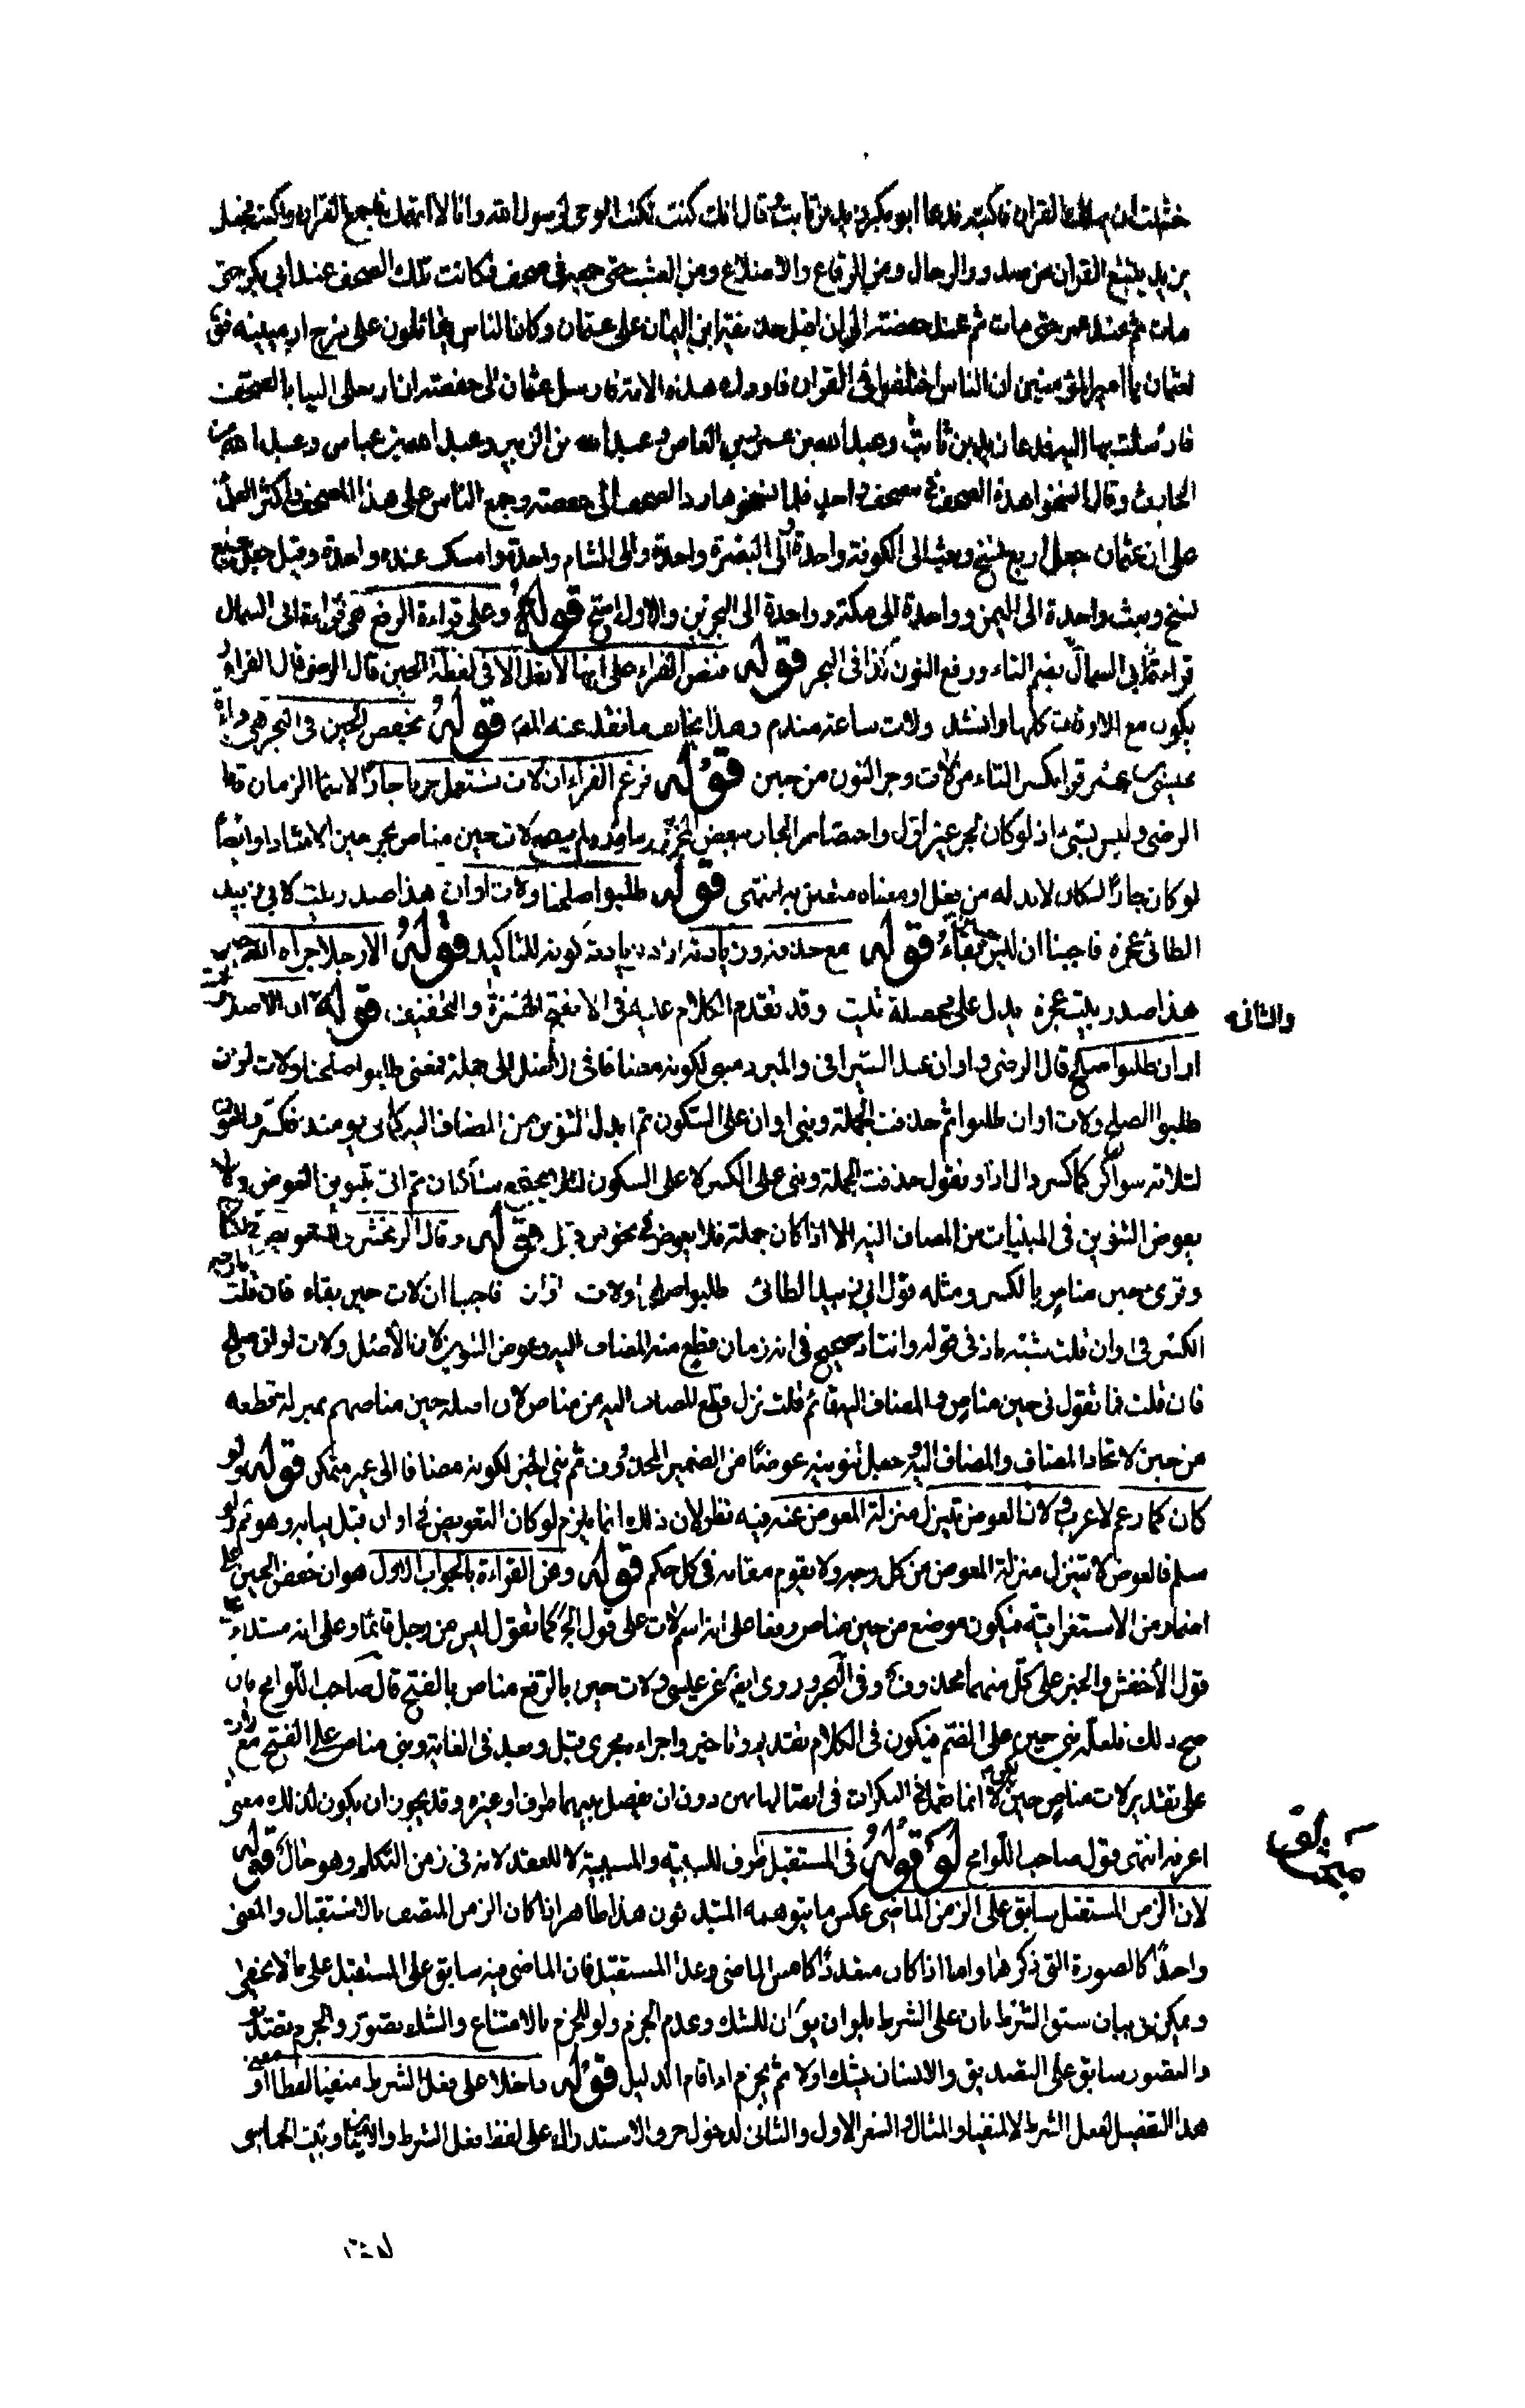 خشيت ان يهلك القران فاكتبه فدعا ابو بكر زيد بن ثابت وقال انك كنت تكتب الوحى لرسول الله وانا لا اتهمك فاجمع القران واكتبه فجعل
يزيد يتتبع القران من صدور الرجال ومن الرقاع والاضلاع ومن العشب حتى جمعه فى صحف فكانت تلك الصحف عند ابي بكر حتى
مات ثم عند عمر حتى مات ثم عند حفصة الى ان اقبل حذيفة ابن اليمان على عثمان وكان الناس يقاتلون على ارمينيه فق
لعثمان يا امير المؤمنين ان الناس اختلفوا فى القران فادرك هذه الامة فارسل عثمان الى حفصة ان ارسلى الينا بالصحف
فارسلت بها اليه فدعا زيد بن ثابت وعبد الله بن عمرو بن العاص وعبد الله بن الزبير وعبد الله بن عباس وعبد الله بن
الحارث وقال انسخوا هذه الصحف فى مصحف واحد فلما نسخوها رد الصحف الى حفصة وجمع الناس على هذا المصحف واكثر العلما
على ان عثمان جعل اربع نسخ وبعث الى الكوفة واحدة والى البصرة واحدة والى الشام واحدة وامسك عنده واحدة وقيل جعل سبع
نسخ وبعث واحدة الى اليمن وواحدة الى مكة وواحدة الى البحرين والاول اصح قوله وعلى قراءة الرفع هى قراءة ابى السمال
قراءة ابي السمال بضم التاء ورفع النون كذا فى البحر قوله فنص الفراء على انها لا تعمل الا فى لفظة الحين قال الرضى قال الفراء
يكون مع الاوقات كلها وانشد ولات ساعة مندم وهذا يخالف ما نقله عنه المص قوله بخفض الحين فى البحر هى قراءة
عيسى بن عمر قرا بكسر التاء من لات وجر النون من حين قوله فزعم الفراء ان لات تستعمل حرفا جارا لاسماء الزمان قال
الرضى وليس بشئ اذ لو كان لجر غير اوان واختصاص الجار ببعض المجرورات نادر ولم يسمع لات حين مناص بجر حين الا شاذا وايضا
لو كان جارا لكان لابد له من فعل او معناه متعلق به انتهى قوله طلبوا صلحنا ولات اوان هذا صدر بيت لابي زبيد
الطائى عجزه فاجبنا ان ليس حين بقاء قوله مع حذفه وزيادته اراد بزيادته كونه للتاكيد قوله الا رجلا جزاه الله خيرا
هذا صدر بيت عجزه يدل على محصلة تبيت وقد تقدم الكلام عليه فى الا بفتح الهمزة والتخفيف قوله ان الاصل
والثانى
اوان طلبوا صلح قال الرضى واوان عند السيرافى والمبرد مبنى لكونه مضافا فى الاصل الى جملة فمعنى طلبوا صلحنا ولات اوان
طلبوا الصلح ولات اوان طلبوا ثم حذفت الجملة وبنى اوان على السكون ثم ابدل التنوين من المضاف اليه كما فى يومئذ فكسر
لثلاثة سواكن كما كسر ذال اذ او نقول حذفت الجملة وبنى على الكسر لا على السكون لئلا يجتمع ساكنان ثم اتى بتنوين العوض ولا
يعوض التنوين فى المبنيات من المضاف اليه الا اذا كان جملة فلا يعوض فى نحو من قبل قوله وقال الزمخشرى
وقرئ حين مناص بالكسر ومثله قول ابي زبيد الطائى طلبوا صلحنا ولات اوان فاجبنا ان لات حين بقاء فان قلت
الكسر فى اوان قلت شبه باذ فى قوله وانت اذ صحيح فى انه زمان قطع منه المضاف اليه وعوض التنوين لان الاصل ولات اوان صلح
فان قلت فما تقول فى حين مناص والمضاف اليه قائم قلت نزل قطع المضاف اليه من مناص لان اصله حين مناصهم بمنزلة قطعه
من حين لاتحاد المضاف والمضاف اليه وجعل تنوينه عوضا من الضمير المحذوف ثم بنى الحين لكونه مضافا الى غير متمكن قوله ولو
كان كما زعم لاعرب لان العوض ينزل منزلة المعوض عنه فيه نظر لان ذلك انما يلزم لو كان التعويض فى اوان قبل بنائه وهو ثم ولو
سلم فالعوض لا يتنزل منزلة المعوض من كل وجه ولا يقوم مقامه فى كل حكم قوله وعن القراءة بالجواب الاول هو ان خفض الحين على
اضمار من الاستغراقية فيكون موضع من حين مناص رفعا على انه اسم لات على قول الجر كما تقول ليس من رجل قائما وعلى انه مبتداء
قول الاخفش والخبر على كل منهما محذوف وفى البحر وروى ايضا عن عيسى ولات حين بالرفع مناص بالفتح قال صاحب اللوامح فان
صح ذلك فلعله بنى حين على الضم فيكون فى الكلام تقديم وتاخير واجراه مجرى قبل وبعد فى الغاية وبنى مناص على الفتح مع لات
على تقدير لات مناص حين لكن لا انما تعمل فى النكرات فى اتصالها بهن دون ان يفصل بينهما ظرف او غيره وقد يجوز ان يكون لذلك معنى
اعرفه انتهى قول صاحب اللوامح لو قوله فى المستقبل ظرف للسببية والمسببية لا للعقد لانه فى زمن التكلم وهو حال قوله
لان الزمن المستقبل سابق على الزمن الماضى عكس ما يتوهمه المبتدئون هذا ظاهر اذا كان الزمن المتصف بالاستقبال والمضى
واحدا كالصورة التى ذكرها واما اذا كان متعددا كامس الماضى وغدا المستقبل فان الماضى فيه سابق على المستقبل على ما لا يخفى
ويمكن بيان سبق الشرط بان على الشرط بلو ان ان للشك وعدم الجزم ولو للجزم بالامتناع والشك تصور والجزم تصديق
والتصور سابق على التصديق والانسان يشك اولا ثم يجزم اذا قام الدليل قوله داخلا على فعل الشرط منفيا لفظا او معنى
هذا التفصيل لفعل الشرط لا لمنفيا والمثال والشعر الاول والثانى لدخول حرف الاستدراك على لفظ فعل الشرط وبيت الحماسى